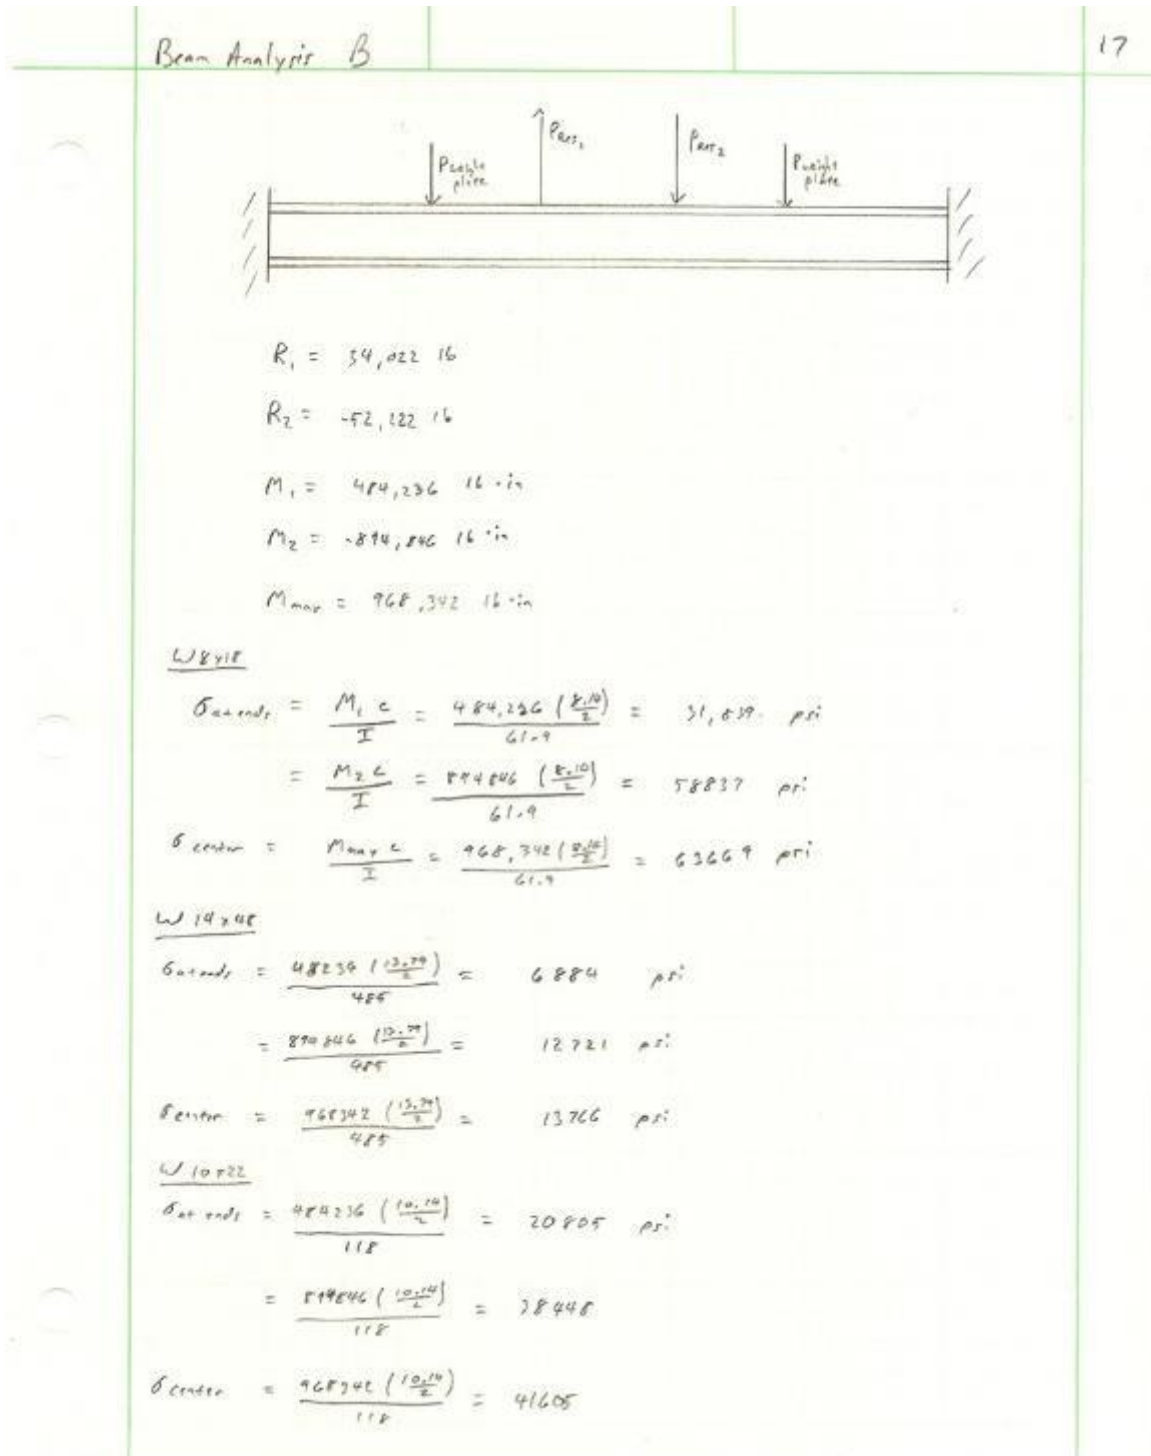 Beam Analysis B
17
P weight plate
P
P
P weight plate
R₁ = 54,022 lb
R₂ = -52,122 lb
M₁ = 484,236 lb·in
M₂ = -894,846 lb·in
Mmax = 968,342 lb·in
W8x18
σat ends = M₁ c / I = 484,236 (8.14/2) / 61.9 = 31,839. psi
= M₂ c / I = 894846 (8.14/2) / 61.9 = 58837 psi
σcenter = Mmax c / I = 968,342 (8.14/2) / 61.9 = 63669 psi
W14x48
σat ends = 48236 (13.79/2) / 485 = 6884 psi
= 894846 (13.79/2) / 485 = 12721 psi
σcenter = 968342 (13.79/2) / 485 = 13766 psi
W10x22
σat ends = 484236 (10.14/2) / 118 = 20805 psi
= 894846 (10.14/2) / 118 = 38448
σcenter = 968342 (10.14/2) / 118 = 41605